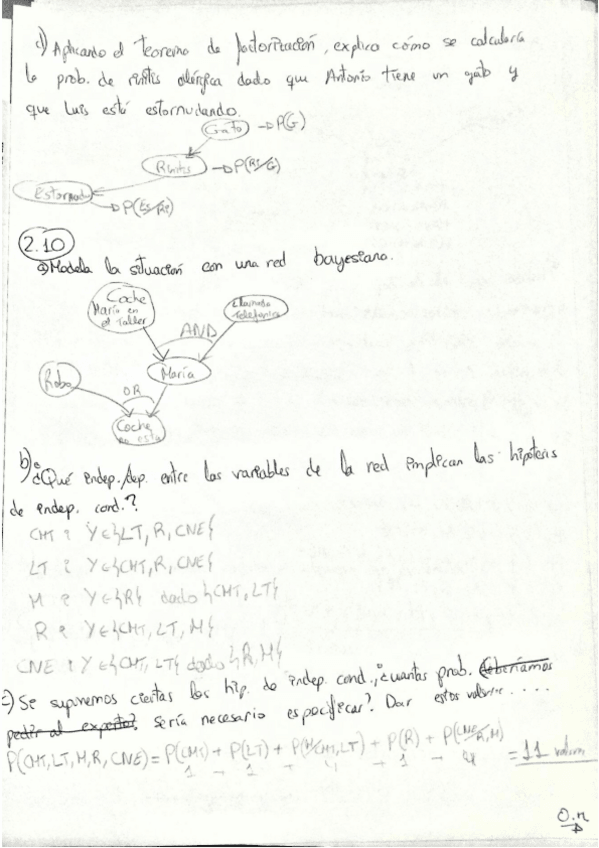 c) Aplicando el teorema de factorización, explica cómo se calcularía
la prob. de rinitis alérgica dado que Antonio tiene un gato y
que Luis está estornudando.
Gato → P(G)
Rinitis → P(Ri/G)
Estornud → P(Es/Ri)
2.10
a) Modela la situación con una red bayesiana.
Coche María en el Taller
Llamada telefónica
AND
María
Robo
OR
Coche no está
b) ¿Qué indep./dep. entre las variables de la red implican las hipótesis
de indep. cond.?
CMT Y∈{LT, R, CNE}
LT Y∈{CMT, R, CNE}
M Y∈{R} dado {CMT, LT}
R Y∈{CMT, LT, M}
CNE Y∈{CMT, LT} dado {R, M}
c) Se suponemos ciertas las hip. de indep. cond., ¿cuantas prob. deberíamos
pedir al experto? sería necesario especificar? Dar estos valores....
P(CMT, LT, M, R, CNE) = P(CMT) + P(LT) + P(M/CMT, LT) + P(R) + P(CNE/R, M) = 11 valores
1 - 1 + 4 + 1 - 4